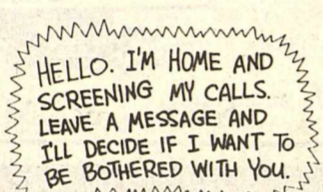 HELLO. I'M HOME AND
SCREENING MY CALLS.
LEAVE A MESSAGE AND
I'LL DECIDE IF I WANT TO
BE BOTHERED WITH YOU.